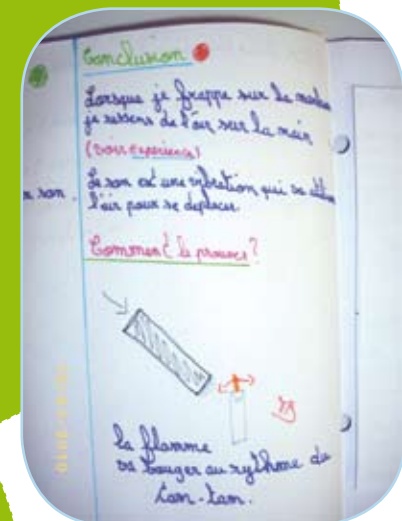 Conclusion
Lorsque je frappe sur le
je ressens de l'air sur la main
(voir expérience)
e son.
Le son est une vibration qui
l'air pour se déplacer
Comment le prouver?
la flamme
va bouger au rythme du
tam-tam.